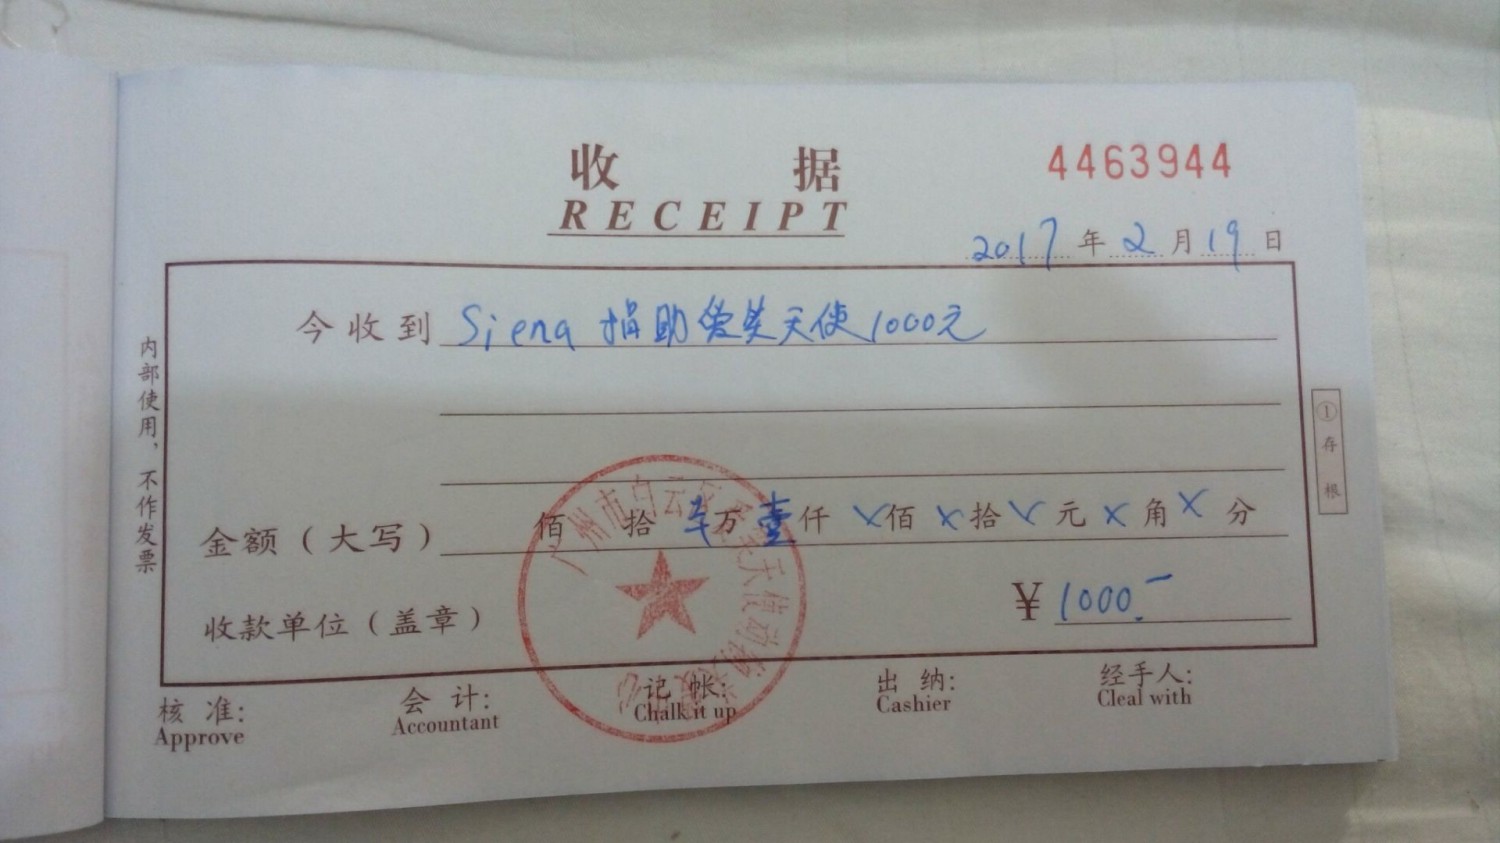 收 据
RECEIPT
4463944
2017年2月19日
今收到 Siena 捐助爱笑天使1000元
金额(大写) 佰 拾 万 壹仟 ×佰 ×拾 ×元 ×角 × 分
¥ 1000.-
收款单位(盖章)
核 准:
Approve
会 计:
Accountant
记 帐:
Chalk it up
出 纳:
Cashier
经手人:
Cleal with
内部使用,不作发票
①存根
广州市白云 天使动物